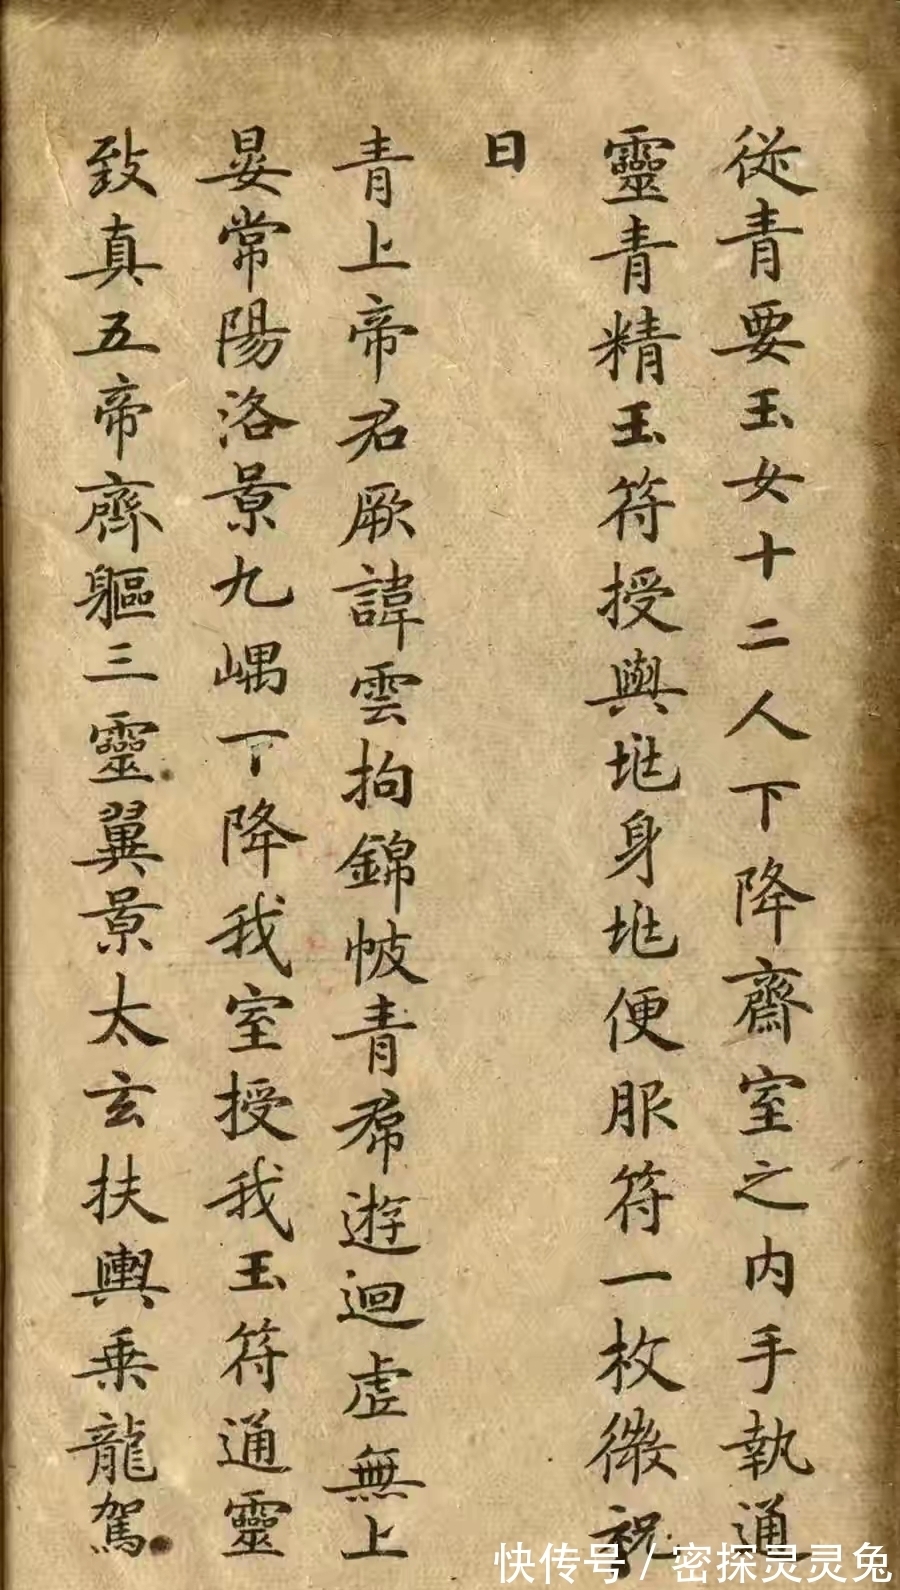 從青要玉女十二人下降齋室之内手執通
靈青精玉符授與兆身兆便服符一枚微祝
曰
青上帝君厥諱雲拘錦帔青帬遊迴虛無上
晏常陽洛景九嵎下降我室授我玉符通靈
致真五帝齊軀三靈翼景太玄扶輿乘龍駕
快传号/密探灵灵兔